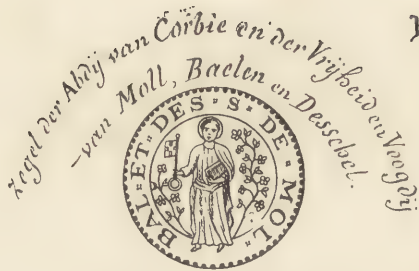 Zegel der Abdij van Corbie en der Vrijheid en Voogdij
-van Moll, Baelen en Desschel.
BAL · ET · DES · S · DE · MOL ·